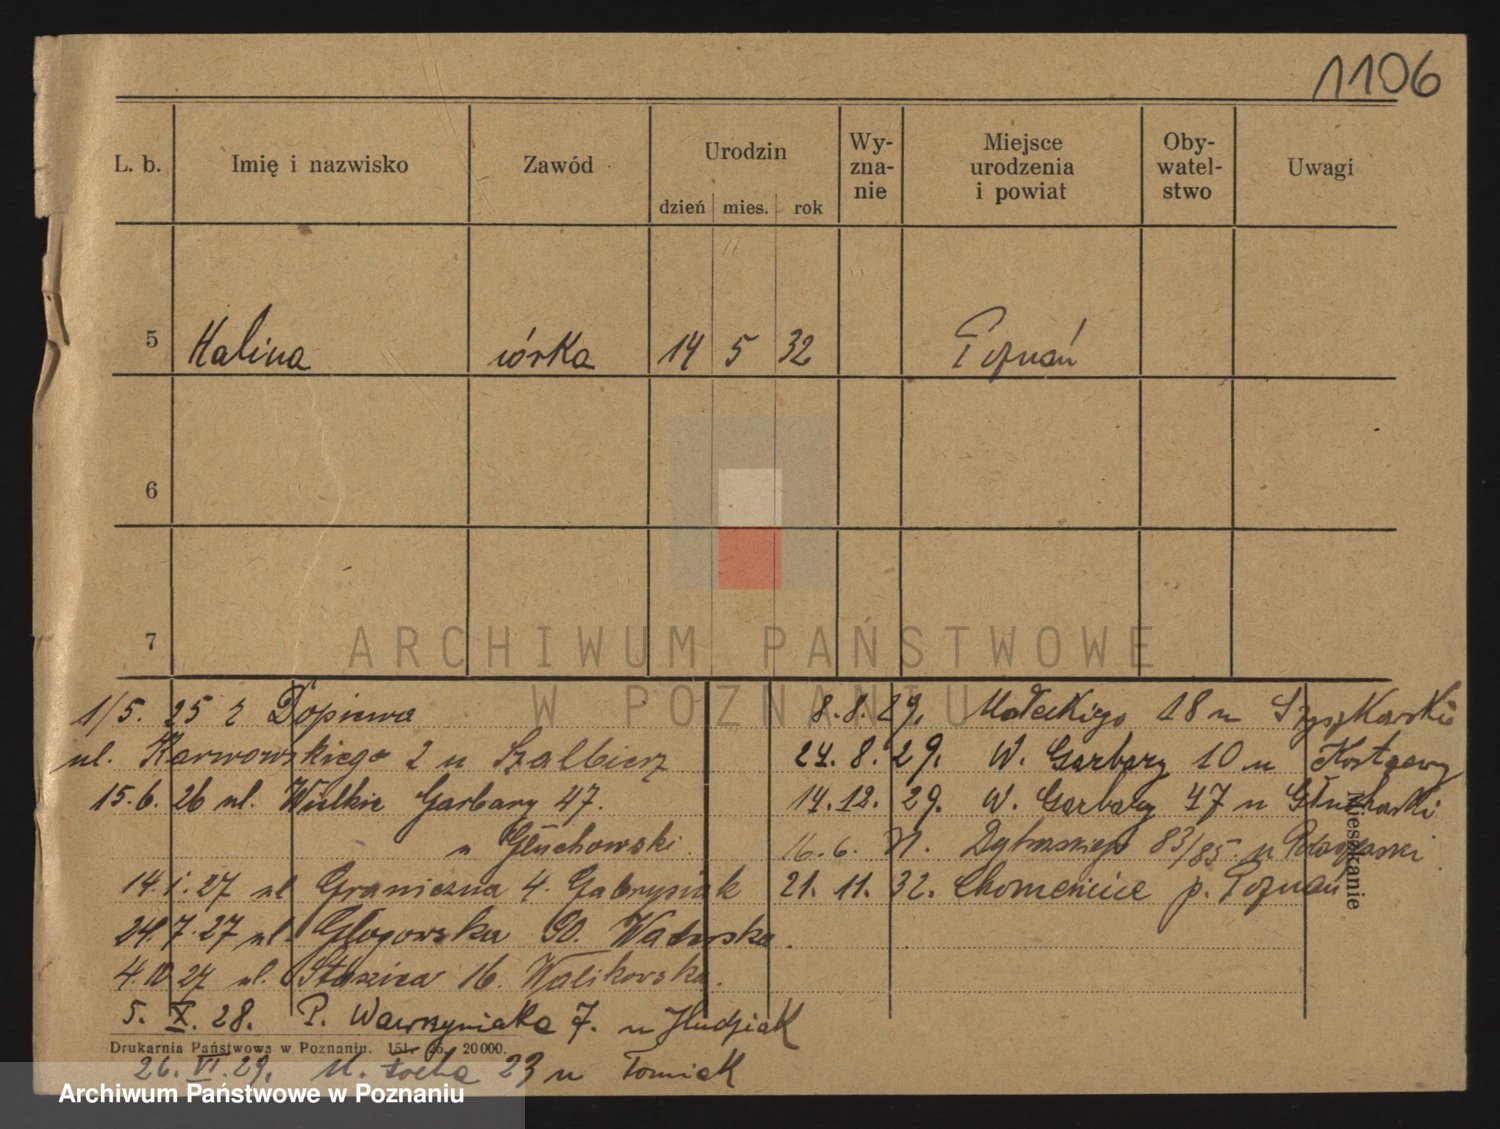 1106
L. b. Imię i nazwisko Zawód Urodzin Wy- Miejsce Oby- Uwagi
zna- urodzenia watel-
dzień mies. rok nie i powiat stwo
5 Halina córka 14 5 32 Poznań
6
7
ARCHIWUM PAŃSTWOWE
W POZNANIU
1/5. 25 z Dopiewa
ul. Karwowskiego 2 u Szalbierz
15.6. 26 ul. Wielkie Garbary 47.
u Głuchowski.
14.1.27 ul Graniczna 4. Gabrysiak
24.7.27 ul. Głogowska 90.
4.10 27 ul. Staszica 16. Walikowska.
5. X. 28. P. Wawrzyniaka 7. u
26. VI. 29. 23 u Tomiak
8.8.29. Małeckiego 18 u Szyszkowski
24.8.29. W. Garbary 10 u
14.12.29. W. Garbary 47 u Głuchowski
16.6. Dąbrowskiego 83/85 u
21. 11. 32. Chomencice p. Poznań
Mieszkanie
Drukarnia Państwowa w Poznaniu. 20 000.
Archiwum Państwowe w Poznaniu